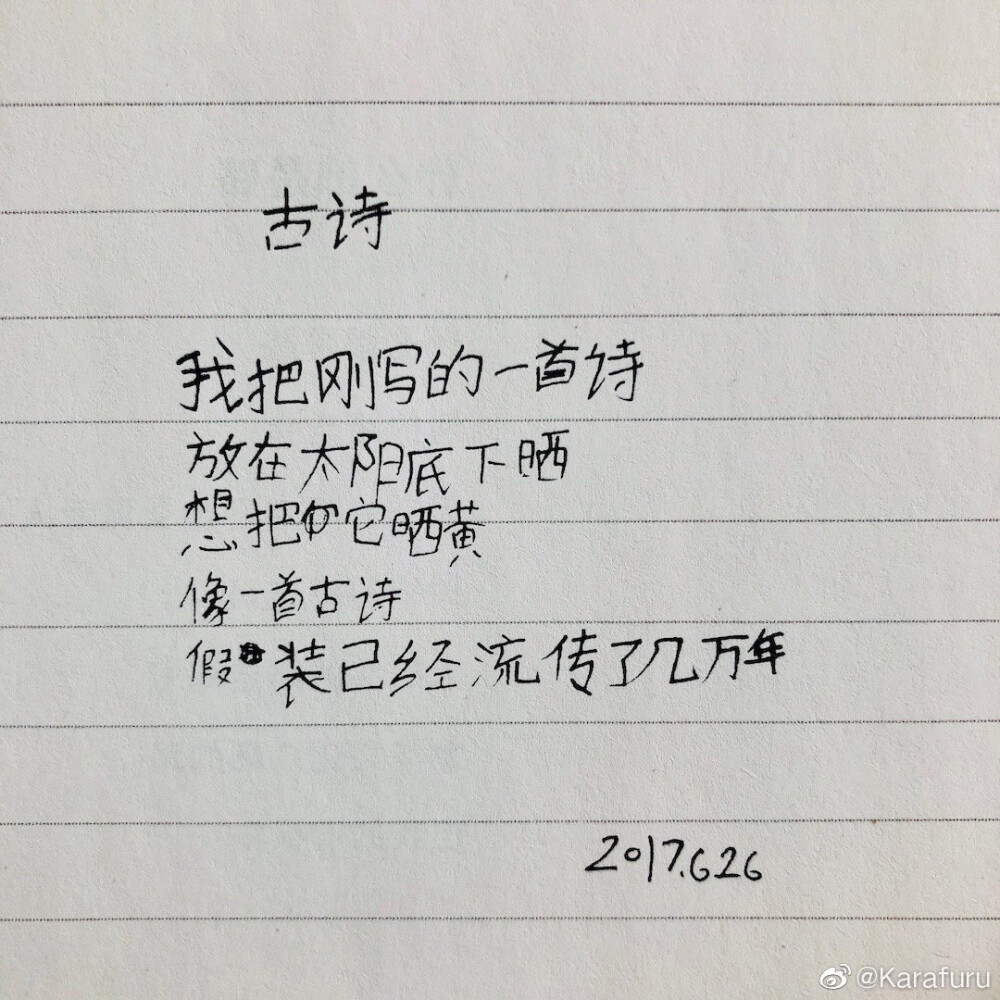 古诗
我把刚写的一首诗
放在太阳底下晒
想把它晒黄
像一首古诗
假装已经流传了几万年
2017.6.26
@Karafuru